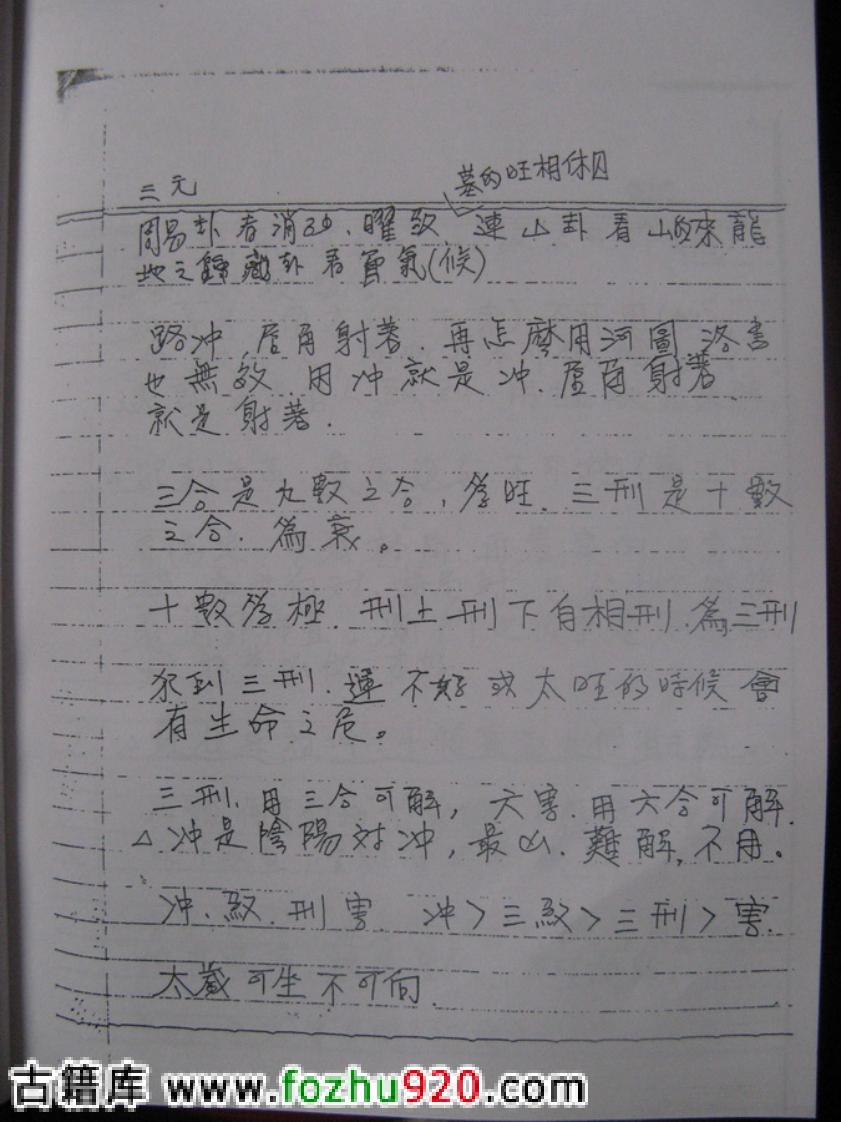 三元
墓的旺相休囚
周易卦看消砂、曜煞 連山卦看山的來龍
地之歸藏卦看節氣(候)
路冲,屋角射著.再怎麼用河圖、洛書
也無效.因冲就是冲.屋角射著
就是射著.
三合是九數之合,為旺.三刑是十數
之合.為衰。
十數為極.刑上刑下自相刑.為三刑
犯到三刑.運不好或太旺的時候會
有生命之危。
三刑.用三合可解,六害.用六合可解.
△冲是陰陽対冲,最凶.難解,不用。
冲、煞.刑害 冲>三煞>三刑>害.
太歲可坐不可向.
古籍库 www.fozhu920.com